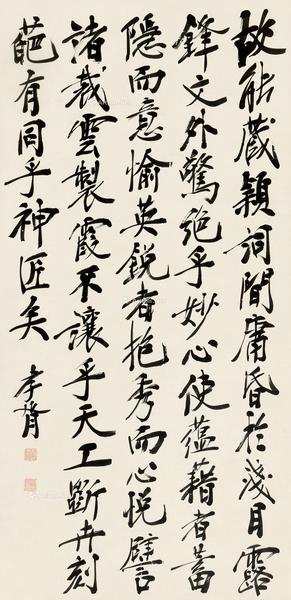 故能藏穎詞間庸昏於淺目露
鋒文外驚絕乎妙心使蘊藉者蓄
隱而意愉英銳者抱秀而心悅譬
諸裁雲製霞不讓乎天工斷卉刻
葩有同乎神匠矣
孝胥